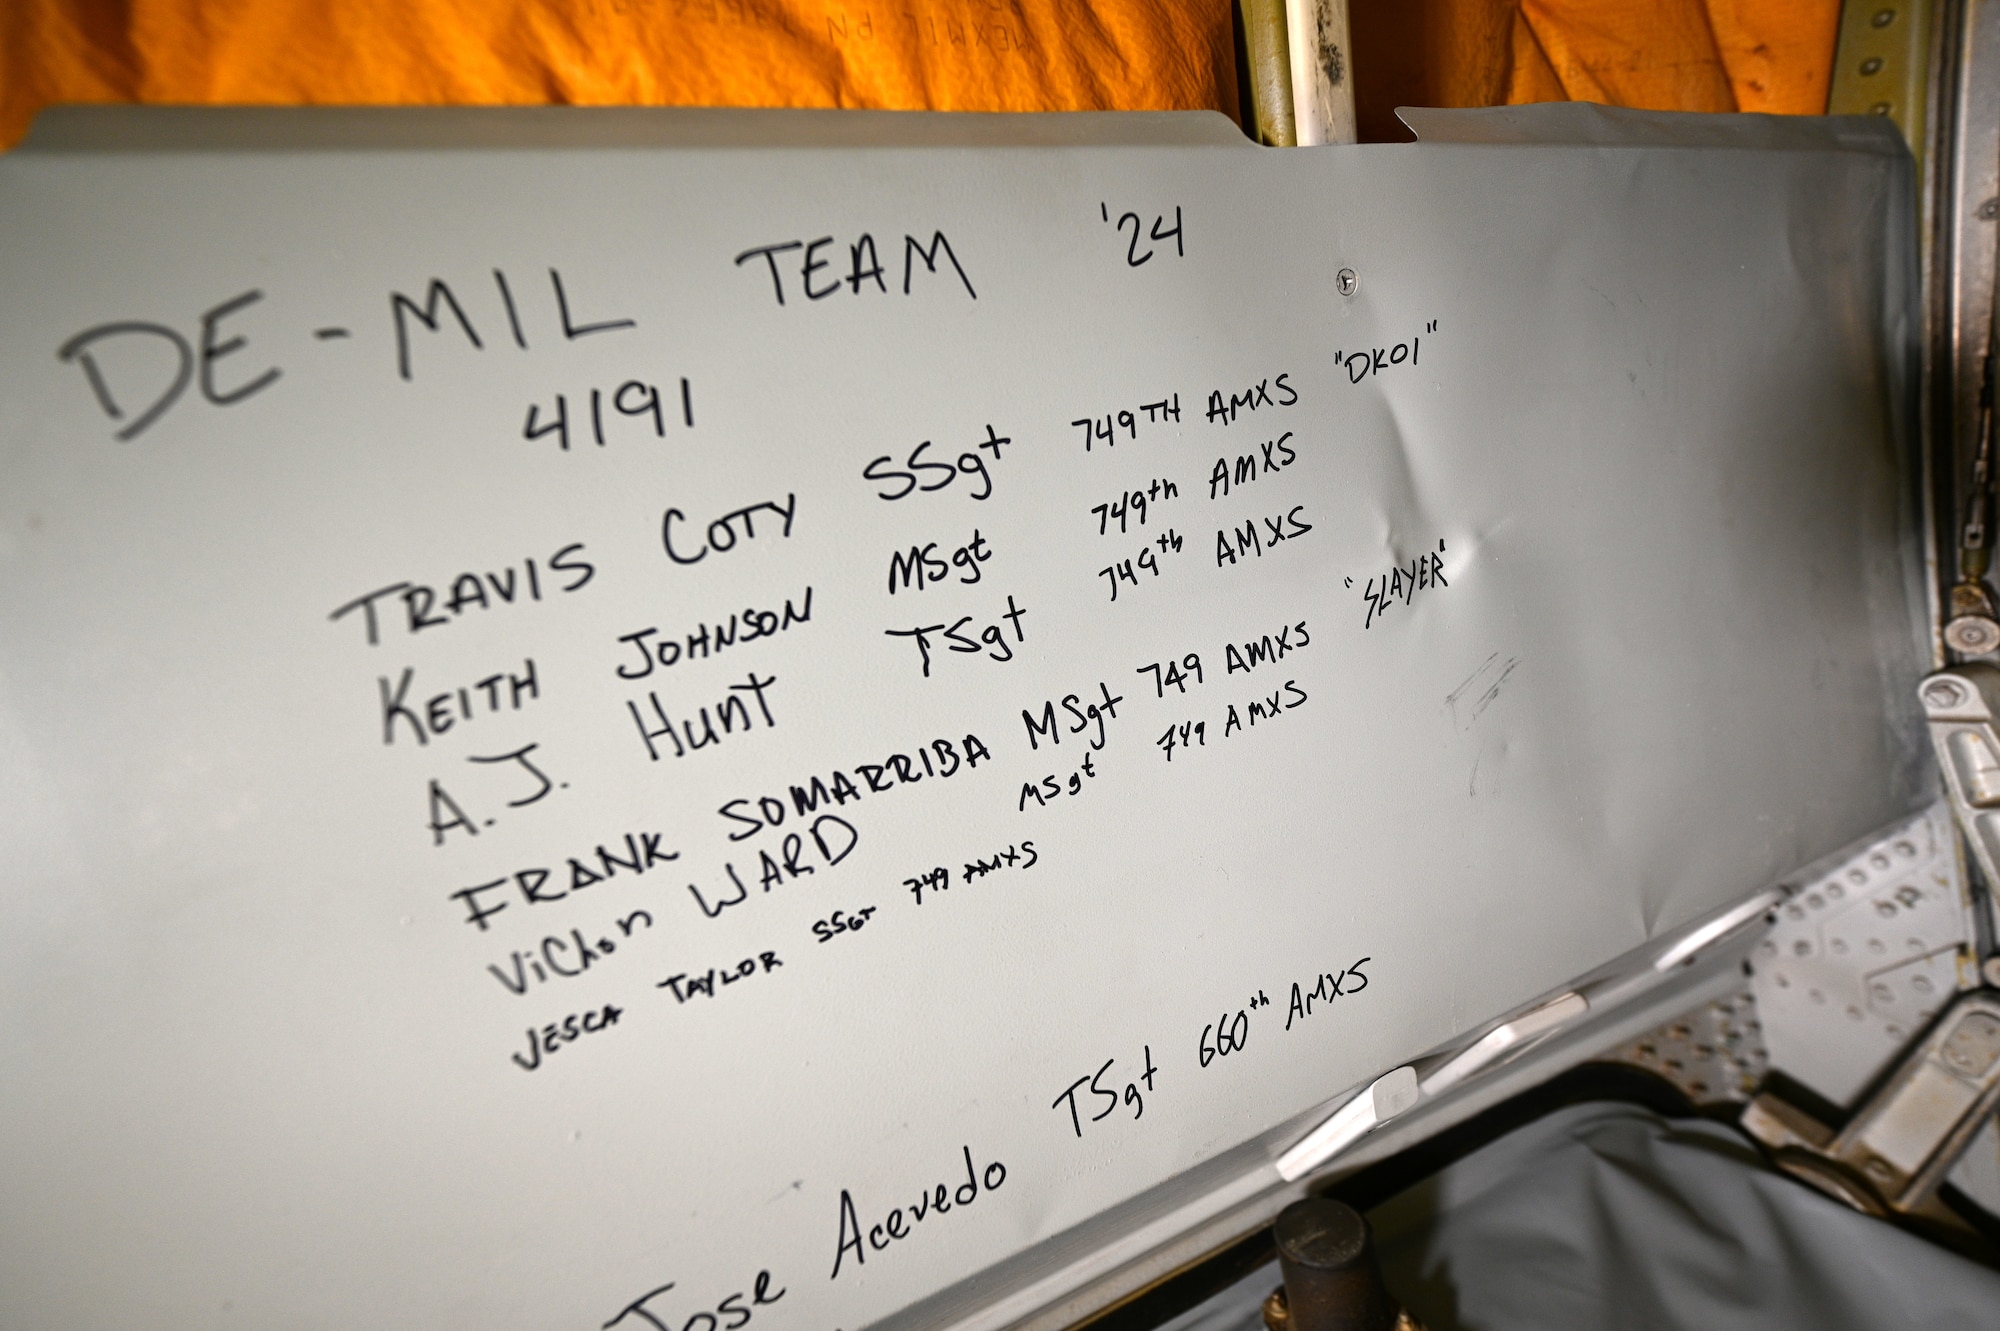 DE-MIL TEAM '24
4191
TRAVIS COTY SSgt 749TH AMXS "DK01"
KEITH JOHNSON MSgt 749th AMXS
A.J. Hunt TSgt 749th AMXS
FRANK SOMARRIBA MSgt 749 AMXS "SLAYER"
ViChon WARD MSgt 749 AMXS
JESCA TAYLOR SSGT 749 AMXS
Jose Acevedo TSgt 660th AMXS